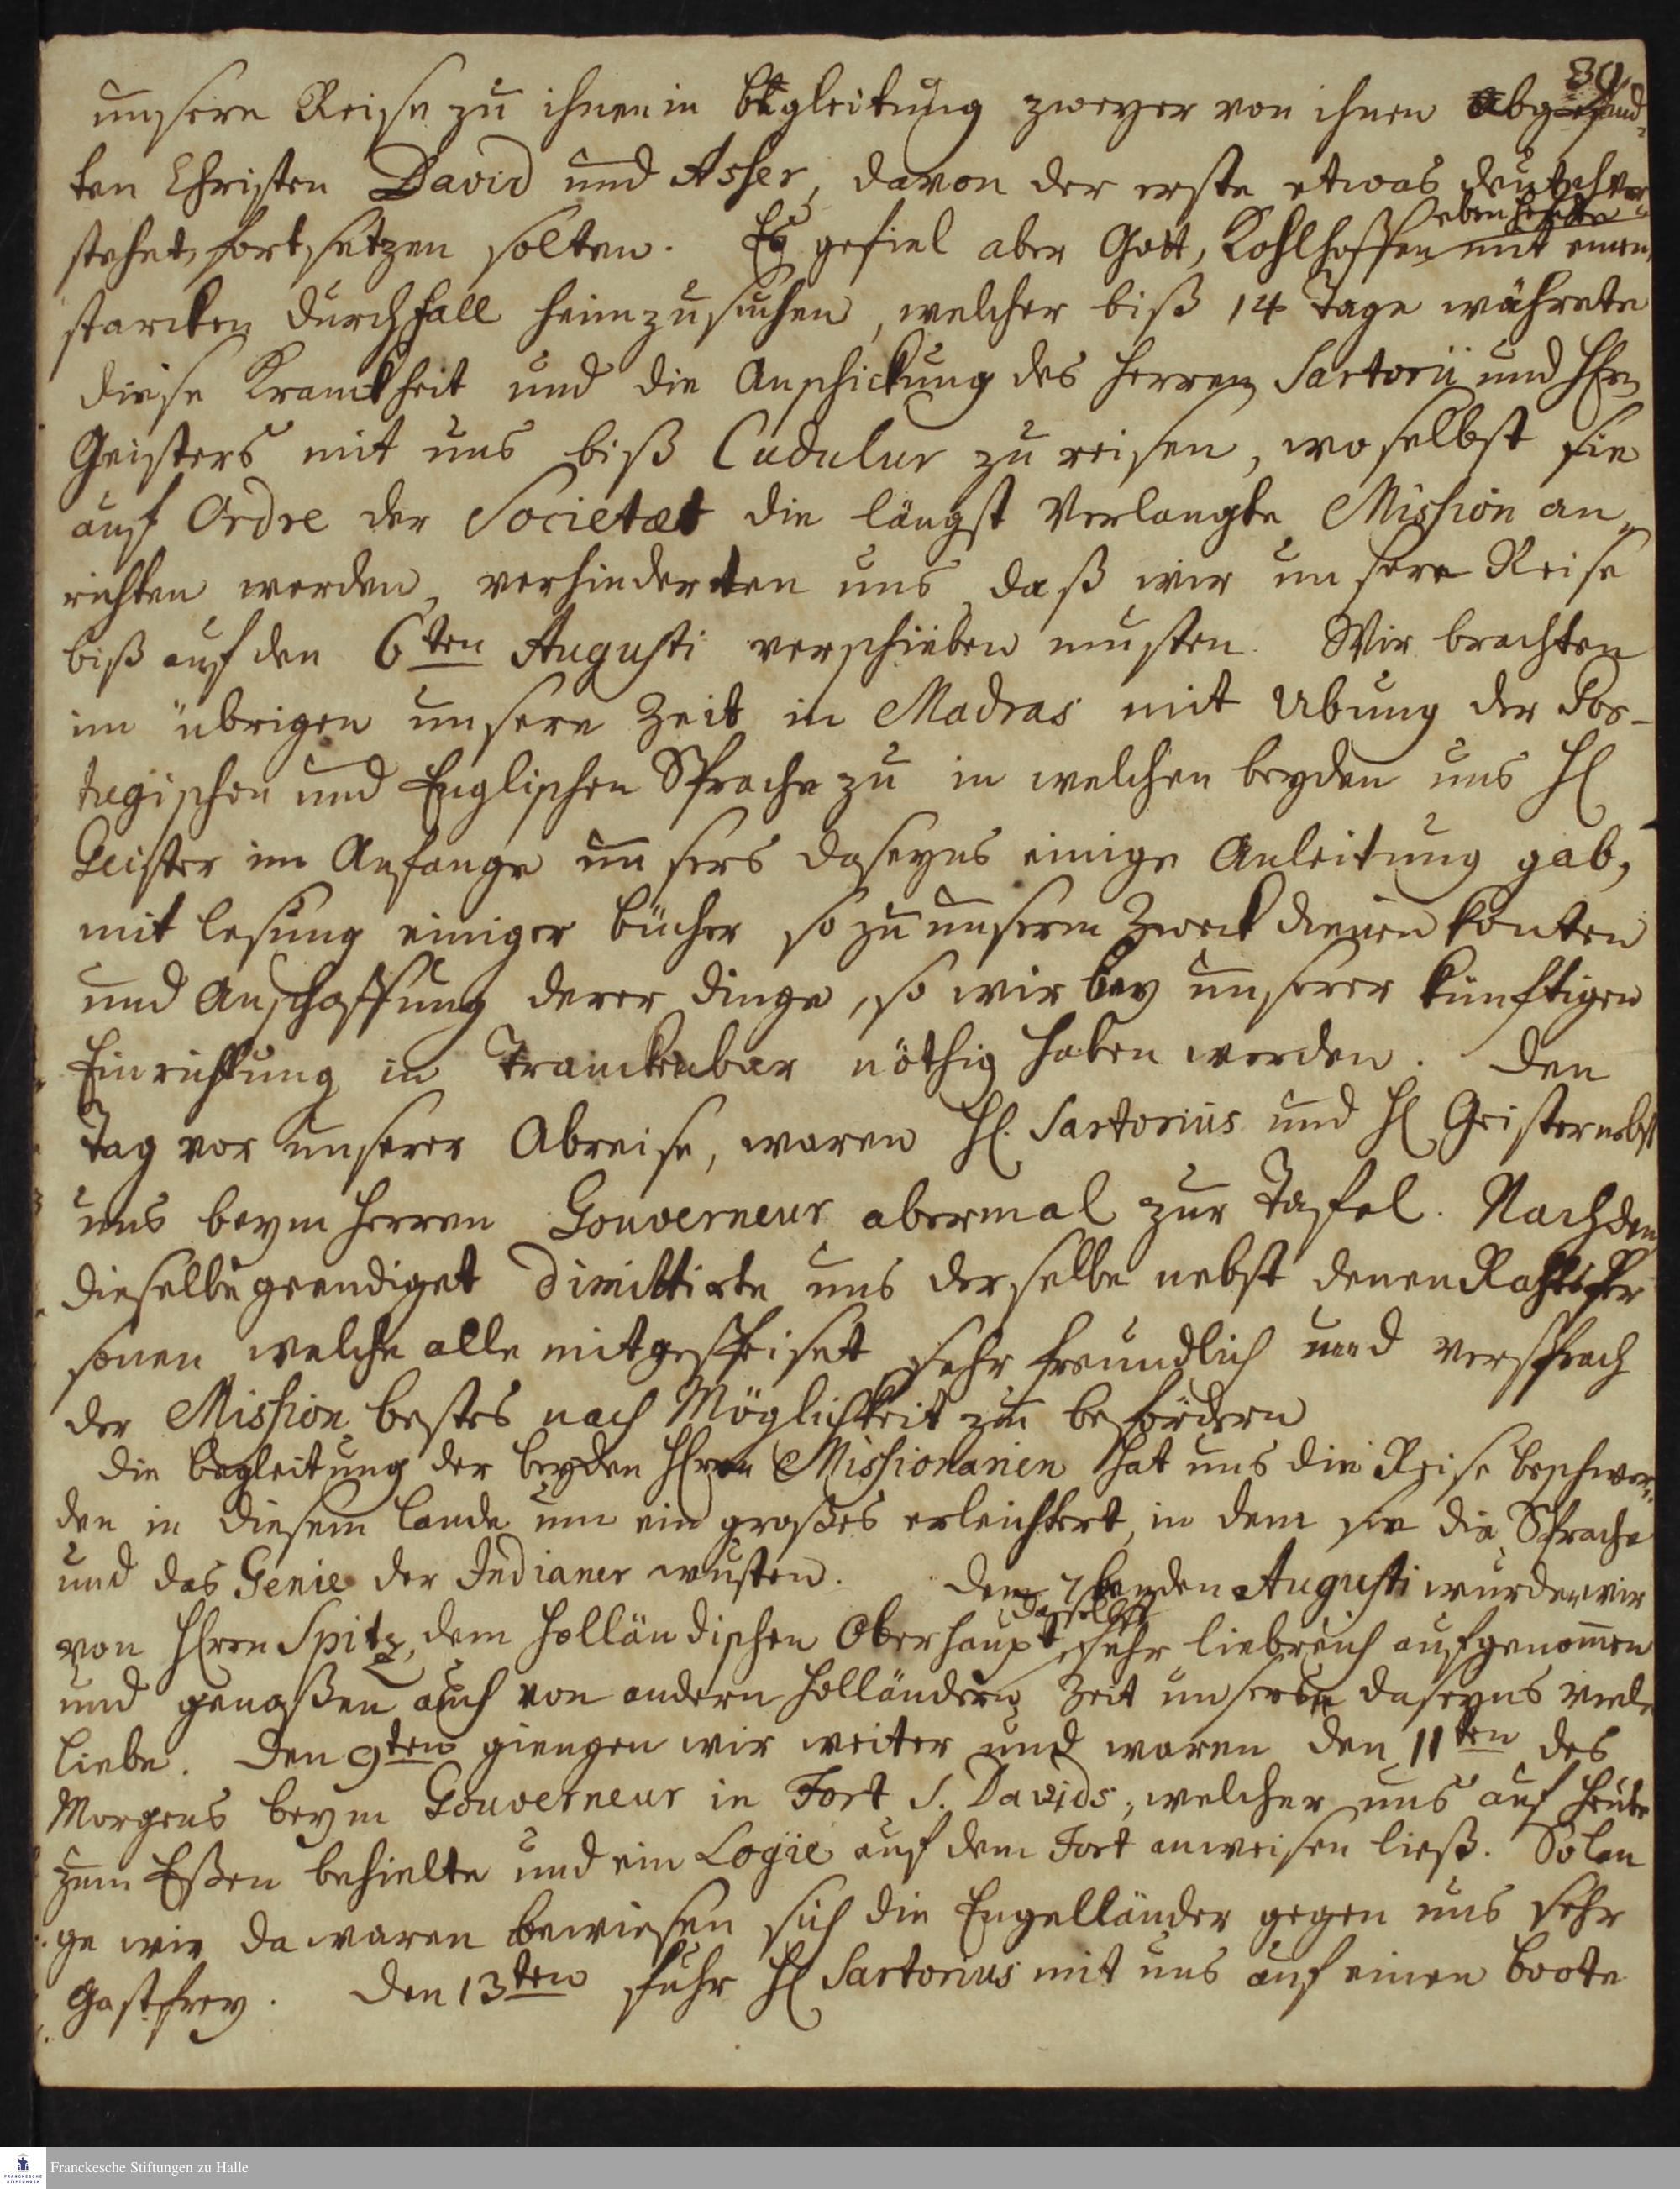 30
unsere Reise zu ihnen in begleitung zweyer von ihnen abgesand-
ten Christen David und Asher, davon der erste etwas deutsch ver-
stehet, fortsetzen solten. Es gefiel aber Gott, Kohlhoffen eben mit einem
starcken durchfall heimzusuchen, welcher biß 14 Tage währete
diese Kranckheit und die Anschickung des Herren Sartorii und HErn
Geisters mit uns biß Cudulur zu reisen, woselbst sie
auf Ordre der Societaet die längst verlangte Mission an-
richten werden, verhinderten uns daß wir unsere Reise
biß auf den 6ten Augusti verschieben musten. Wir brachten
im übrigen unsere Zeit in Madras mit Ubung der Por-
tugischen und Englischen Sprache zu in welchen beyden uns H
Geister im Anfange unsers daseyns einige Anleitung gab,
mit lesung einiger bücher so zu unserm Zweck dienen konten
und Anschaffung derer dinge, so wir bey unserer künftigen
Einrichtung in Tranckenbar nöthig haben werden. Den
Tag vor unserer Abreise, waren H. Sartorius und H Geister nebst
uns beym Herren Gouverneur abermal zur Tafel. Nachdem
dieselbe geendiget dimittirte uns derselbe nebst denen Rahts Per
sonen welche alle mitgespeiset sehr freundlich und versprach
der Mission bestes nach Möglichkeit zu befördern
Die begleitung der beyden HErren Missionarien hat uns die Reise beschwer-
den in diesem Lande um ein großes erleichtert, in dem sie die Sprache
und das Genie der Indianer wusten. Den 7benden Augusti wurden wir
daselbst
von HErrn Spitz, dem holländischen Oberhaupt, sehr liebreich aufgenommen
und genoßen auch von andern holländern Zeit unsers daseyns viele
liebe. Den 9ten giengen wir weiter und waren den 11ten des
Morgens beym Gouverneur in Fort S. Davids, welcher uns auf heute
zum Eßen behielte und ein Logie auf dem Fort anweisen ließ. Solan
ge wir da waren bewiesen sich die Engelländer gegen uns sehr
Gastfrey. Den 13ten fuhr H Sartorius mit uns auf einen boote
Franckesche Stiftungen zu Halle